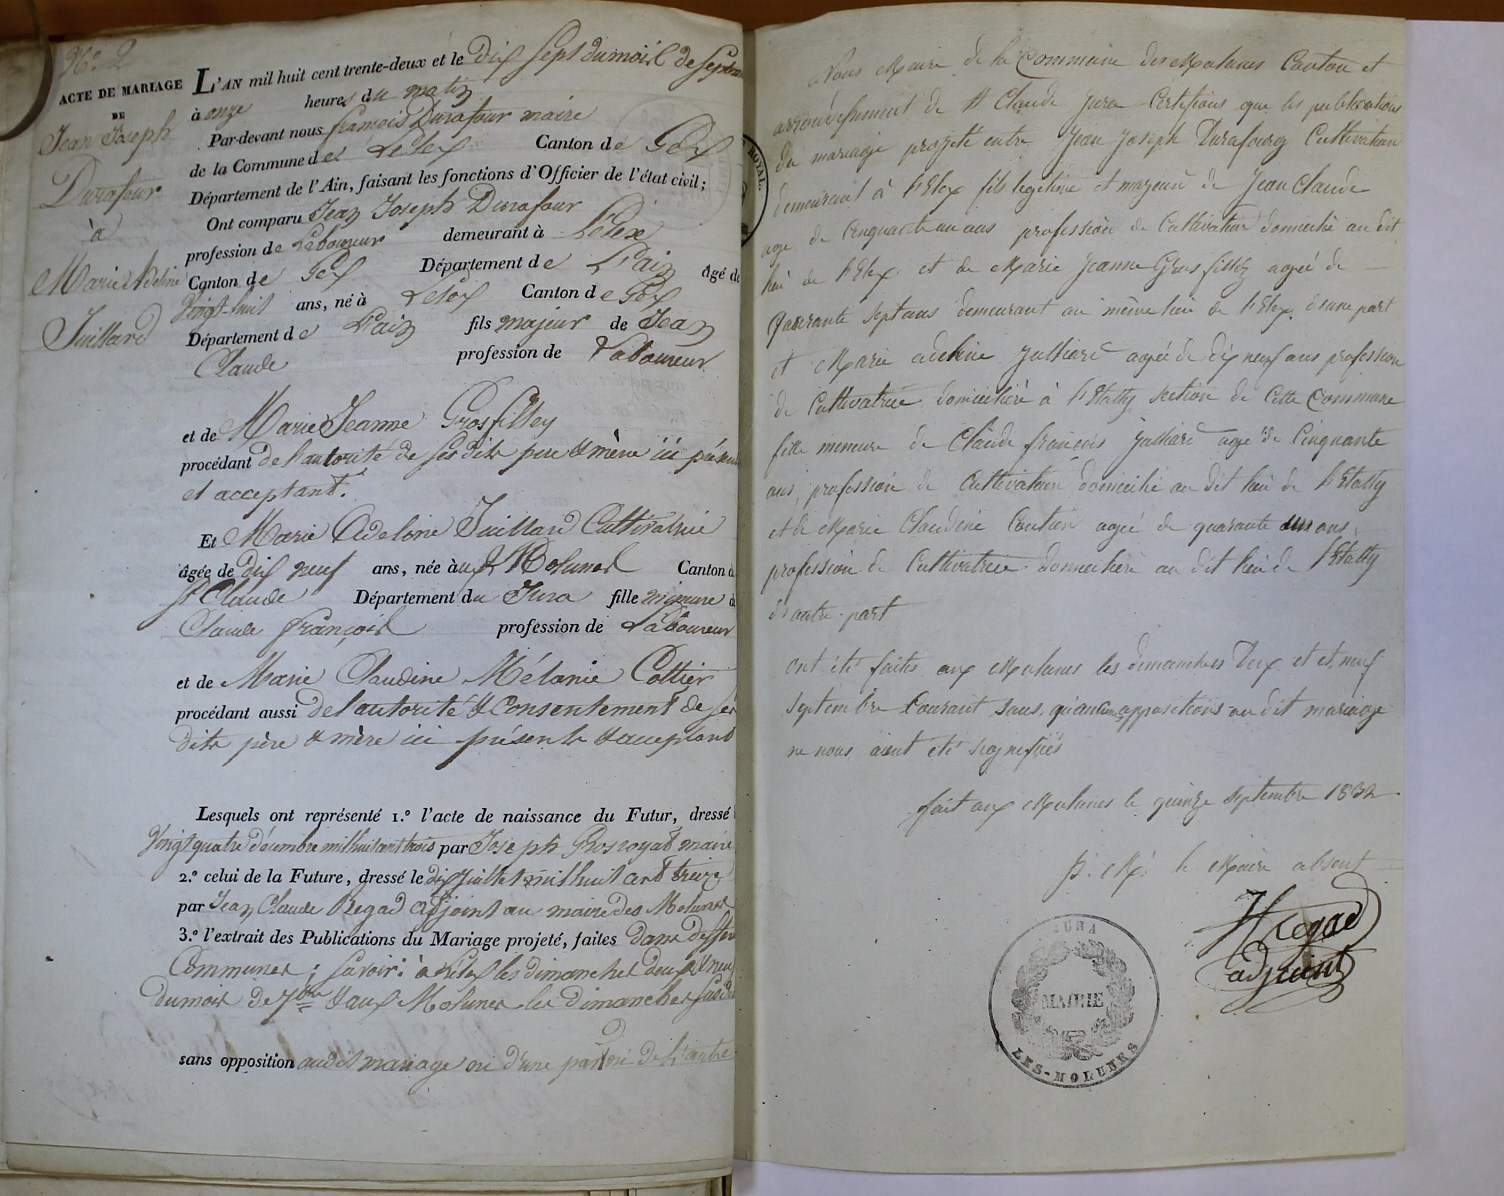 N.o 2
ACTE DE MARIAGE
DE
Jean Joseph
Durafour
à
Marie Adeline
Juillard
L'AN mil huit cent trente-deux et le dix sept du mois de Septem
à onze heures du matin
Par-devant nous françois Durafour maire
de la Commune de Lelex Canton de Gex
Département de l'Ain, faisant les fonctions d'Officier de l'état civil;
Ont comparu Jean Joseph Durafour
profession de Laboureur demeurant à Lelex
Canton de Gex Département de L'ain âgé de
Vingt-huit ans, né à Lelex Canton de Gex
Département de L'ain fils majeur de Jean
Claude profession de Laboureur
et de Marie Jeanne Grosfilley
procédant de l'autorité de ses dits pere & mère ici présents
et acceptant.
Et Marie Adeline Juillard Cultivatrice
âgée de dix neuf ans, née aux Molunes Canton de
St Claude Département du Jura fille mineure de
Claude françois profession de Laboureur
et de Marie Claudine Mélanie Cottier
procédant aussi de l'autorité & Consentement de ses
dits père & mère ici présents & acceptant
Lesquels ont représenté 1.o l'acte de naissance du Futur, dressé
Vingt quatre décembre mil huit cent trois par Joseph Groscoyat maire
2.o celui de la Future, dressé le dix Juillet mil huit cent treize
par Jean Claude Regad adjoint au maire des Molunes
3.o l'extrait des Publications du Mariage projeté, faites dans
Communes; savoir: à Lelex les dimanches deux & neuf
du mois de 7bre & aux Molunes les dimanches susdits
sans opposition audit mariage ni d'une part ni de l'autre
ROYAL.
Nous Maire de la Commune des Molunes Canton et
arrondissement de St Claude Jura Certifions que les publications
du mariage projeté entre Jean Joseph Durafourg Cultivateur
demeurant à l'Elex fils legitime et majeur de Jean Claude
age de Cinquante un ans profession de Cultivateur domicilié au dit
lieu de l'Elex et de Marie Jeanne Grosfilley agée de
Quarante sept ans demeurant au même lieu de l'Elex, d'une part
et Marie adeline Julliard agée de dix neuf ans profession
de Cultivatrice domiciliée à section de Cette Commune
fille mineure de Claude françois Julliard agé de Cinquante
ans, profession de Cultivateur domicilié au dit lieu de
et de Marie Claudine Coutier agée de quarante un ans
profession de Cultivatrice domiciliée au dit lieu de
d'autre part
ont été faites aux Molunes les dimanches Deux et et neuf
Septembre Courant sans qu'aucunes oppositions au dit mariage
ne nous aient été signifiées
fait aux Molunes le quinze septembre 1832
p. M. le Maire absent
Regad
adjoint
JURA
MAIRIE
LES-MOLUNES